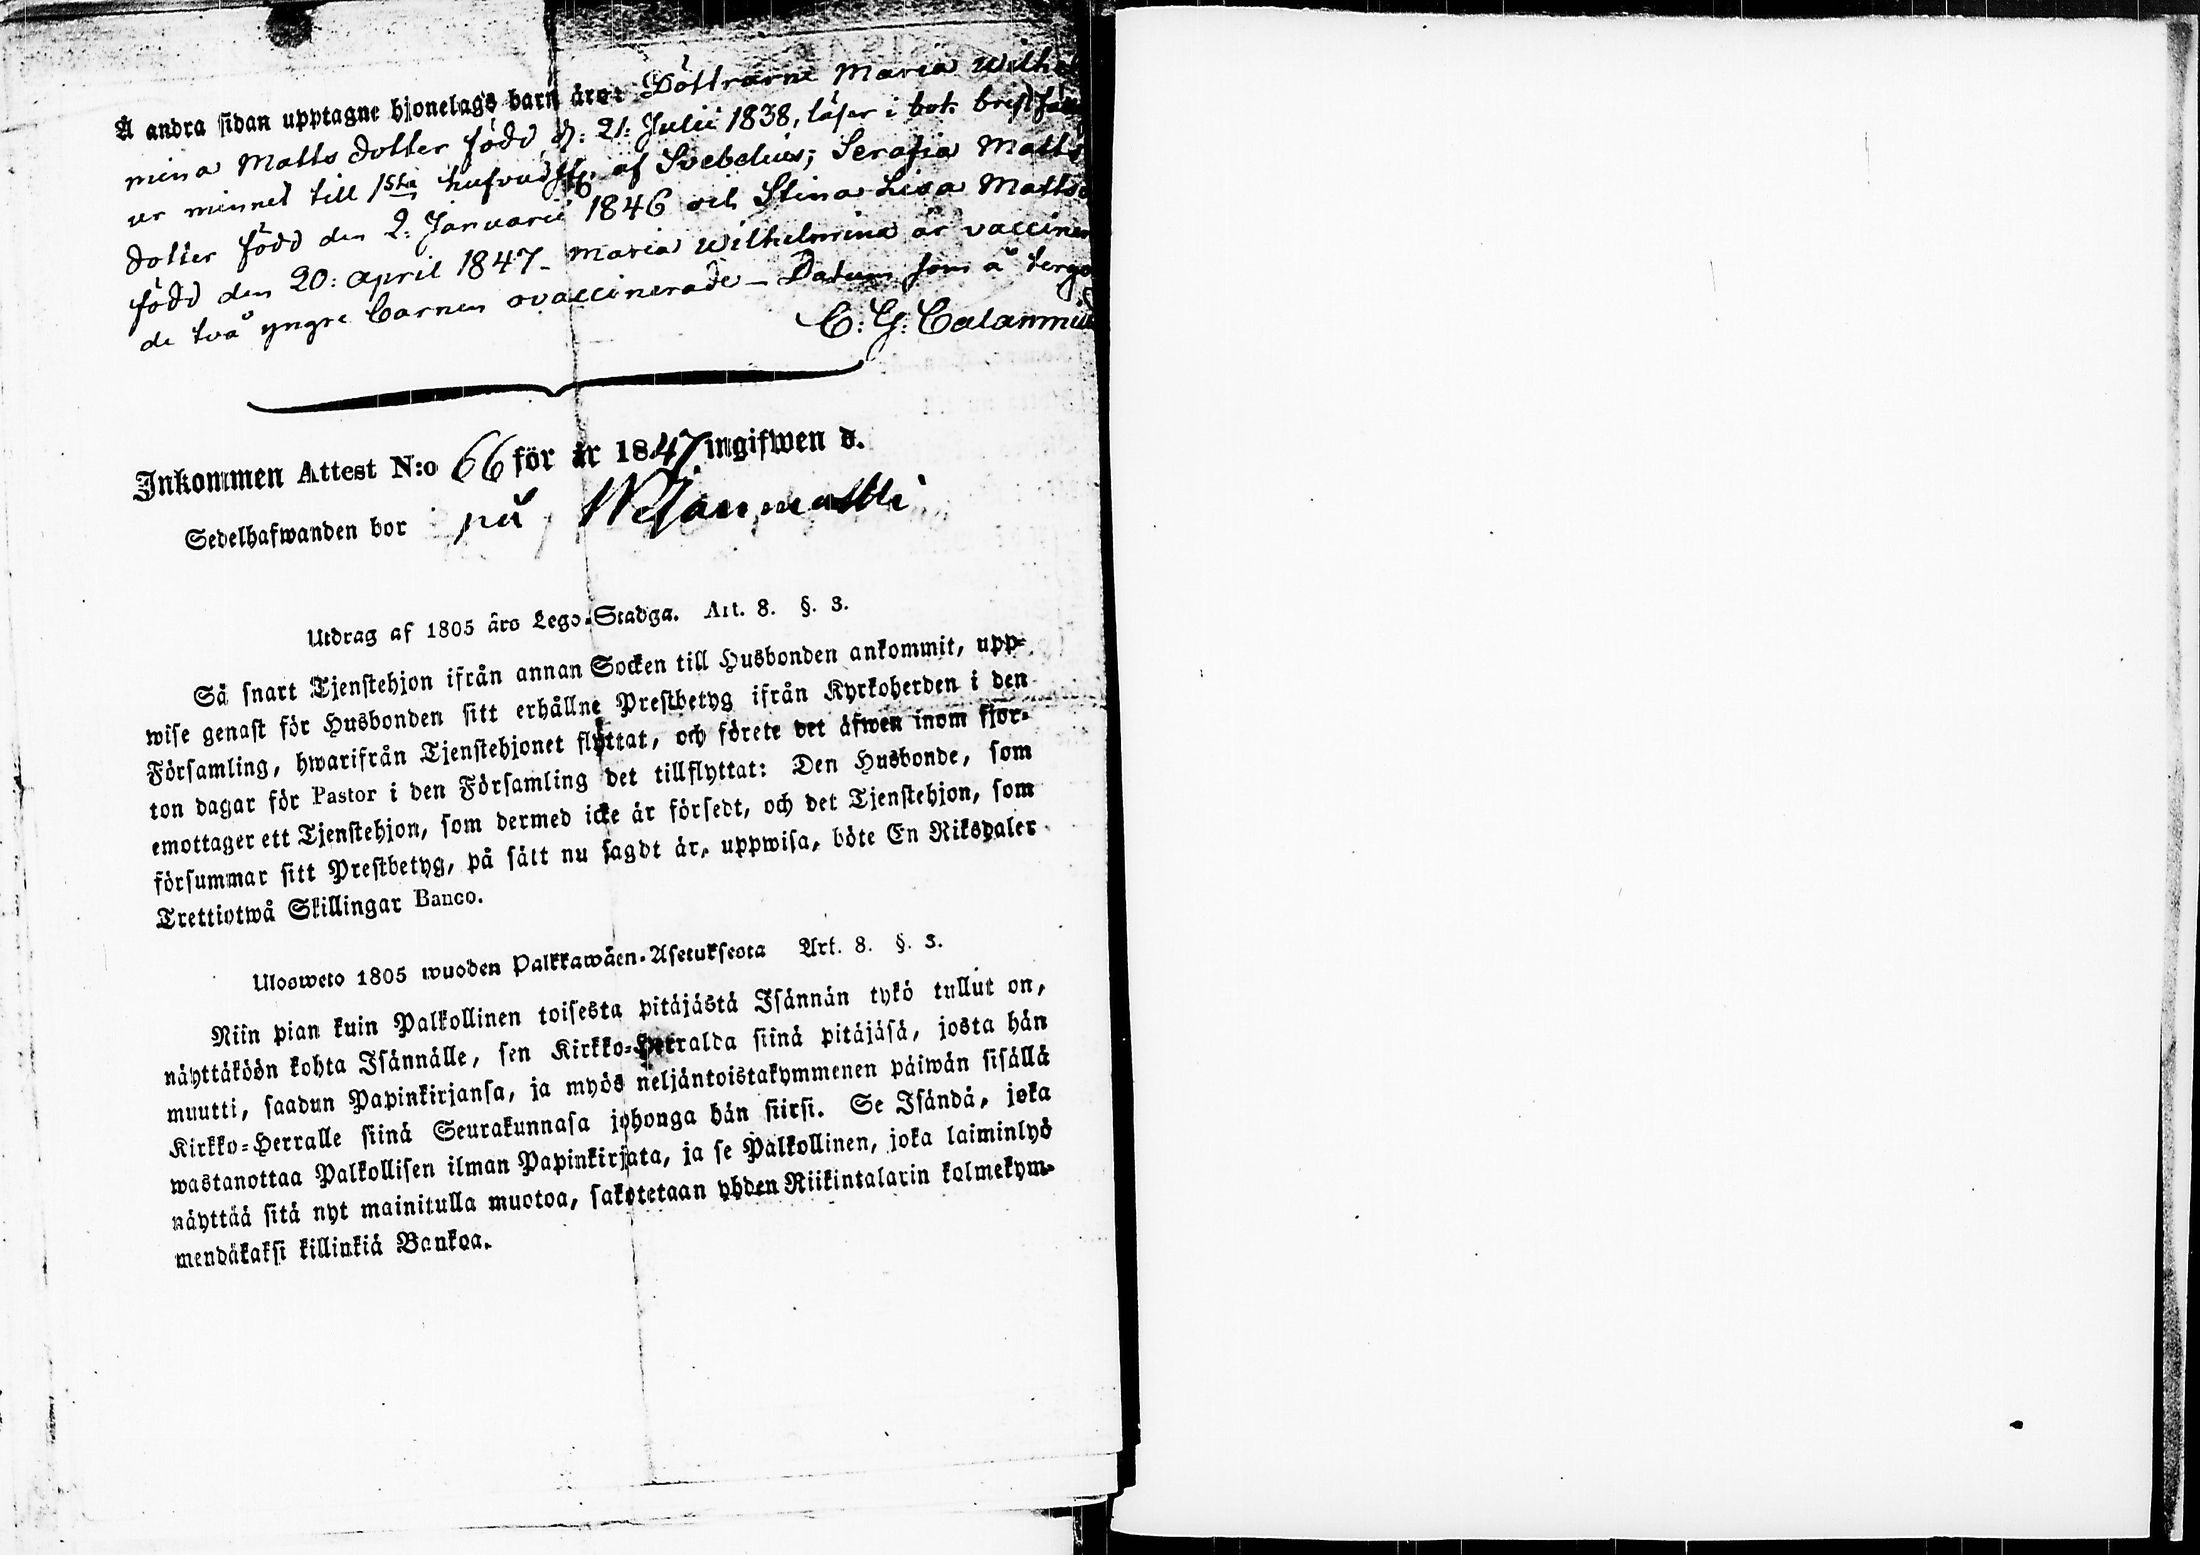 Å andra sidan upptagne hjonelags barn äro: Döttrarne Maria Wilhel
mina Matts dotter född d: 21: Julii 1838, läser i bok bristfäll
ur minnet till 1sta hufvudst: af Svebelius; Serafia Matts
dotter född den 2: Januarii 1846 och Stina Lisa Matts
född den 20: april 1847 - Maria Wilhelmina är vaccine
de två yngre barnen ovaccinerade - Datum som å tergo
C: G: Calamnius
Inkommen Attest N:o 66 för år 1847 ingifwen d.
Sedelhafwanden bor på
Utdrag af 1805 års Lego-Stadga. Art. 8. §. 3.
Så snart Tjenstehjon ifrån annan Socken till Husbonden ankommit, upp-
wise genast för Husbonden sitt erhållne Prestbetyg ifrån Kyrkoherden i den
Församling, hwarifrån Tjenstehjonet flyttat, och förete det äfwen inom fjor-
ton dagar för Pastor i den Församling det tillflyttat: Den Husbonde, som
emottager ett Tjenstehjon, som dermed icke är försedt, och det Tjenstehjon, som
försummar sitt Prestbetyg, på sätt nu sagdt är, uppwisa, böte En Riksdaler
Trettiotwå Skillingar Banco.
Ulosweto 1805 wuoden Palkkawäen-Asetuksesta Art. 8. §. 3.
Niin pian kuin Palkollinen toisesta pitäjästä Isännän tykö tullut on,
näyttäköön kohta Isännälle, sen Kirkko-Herralda siinä pitäjäsä, josta hän
muutti, saadun Papinkirjansa, ja myös neljäntoistakymmenen päiwän sisällä
Kirkko-Herralle siinä Seurakunnasa johonga hän siirsi. Se Isändä, joka
wastanottaa Palkollisen ilman Papinkirjata, ja se Palkollinen, joka laiminlyö
näyttää sitä nyt mainitulla muotoa, sakotetaan yhden Riikintalarin kolmekym-
mendäkaksi killinkiä Bankoa.